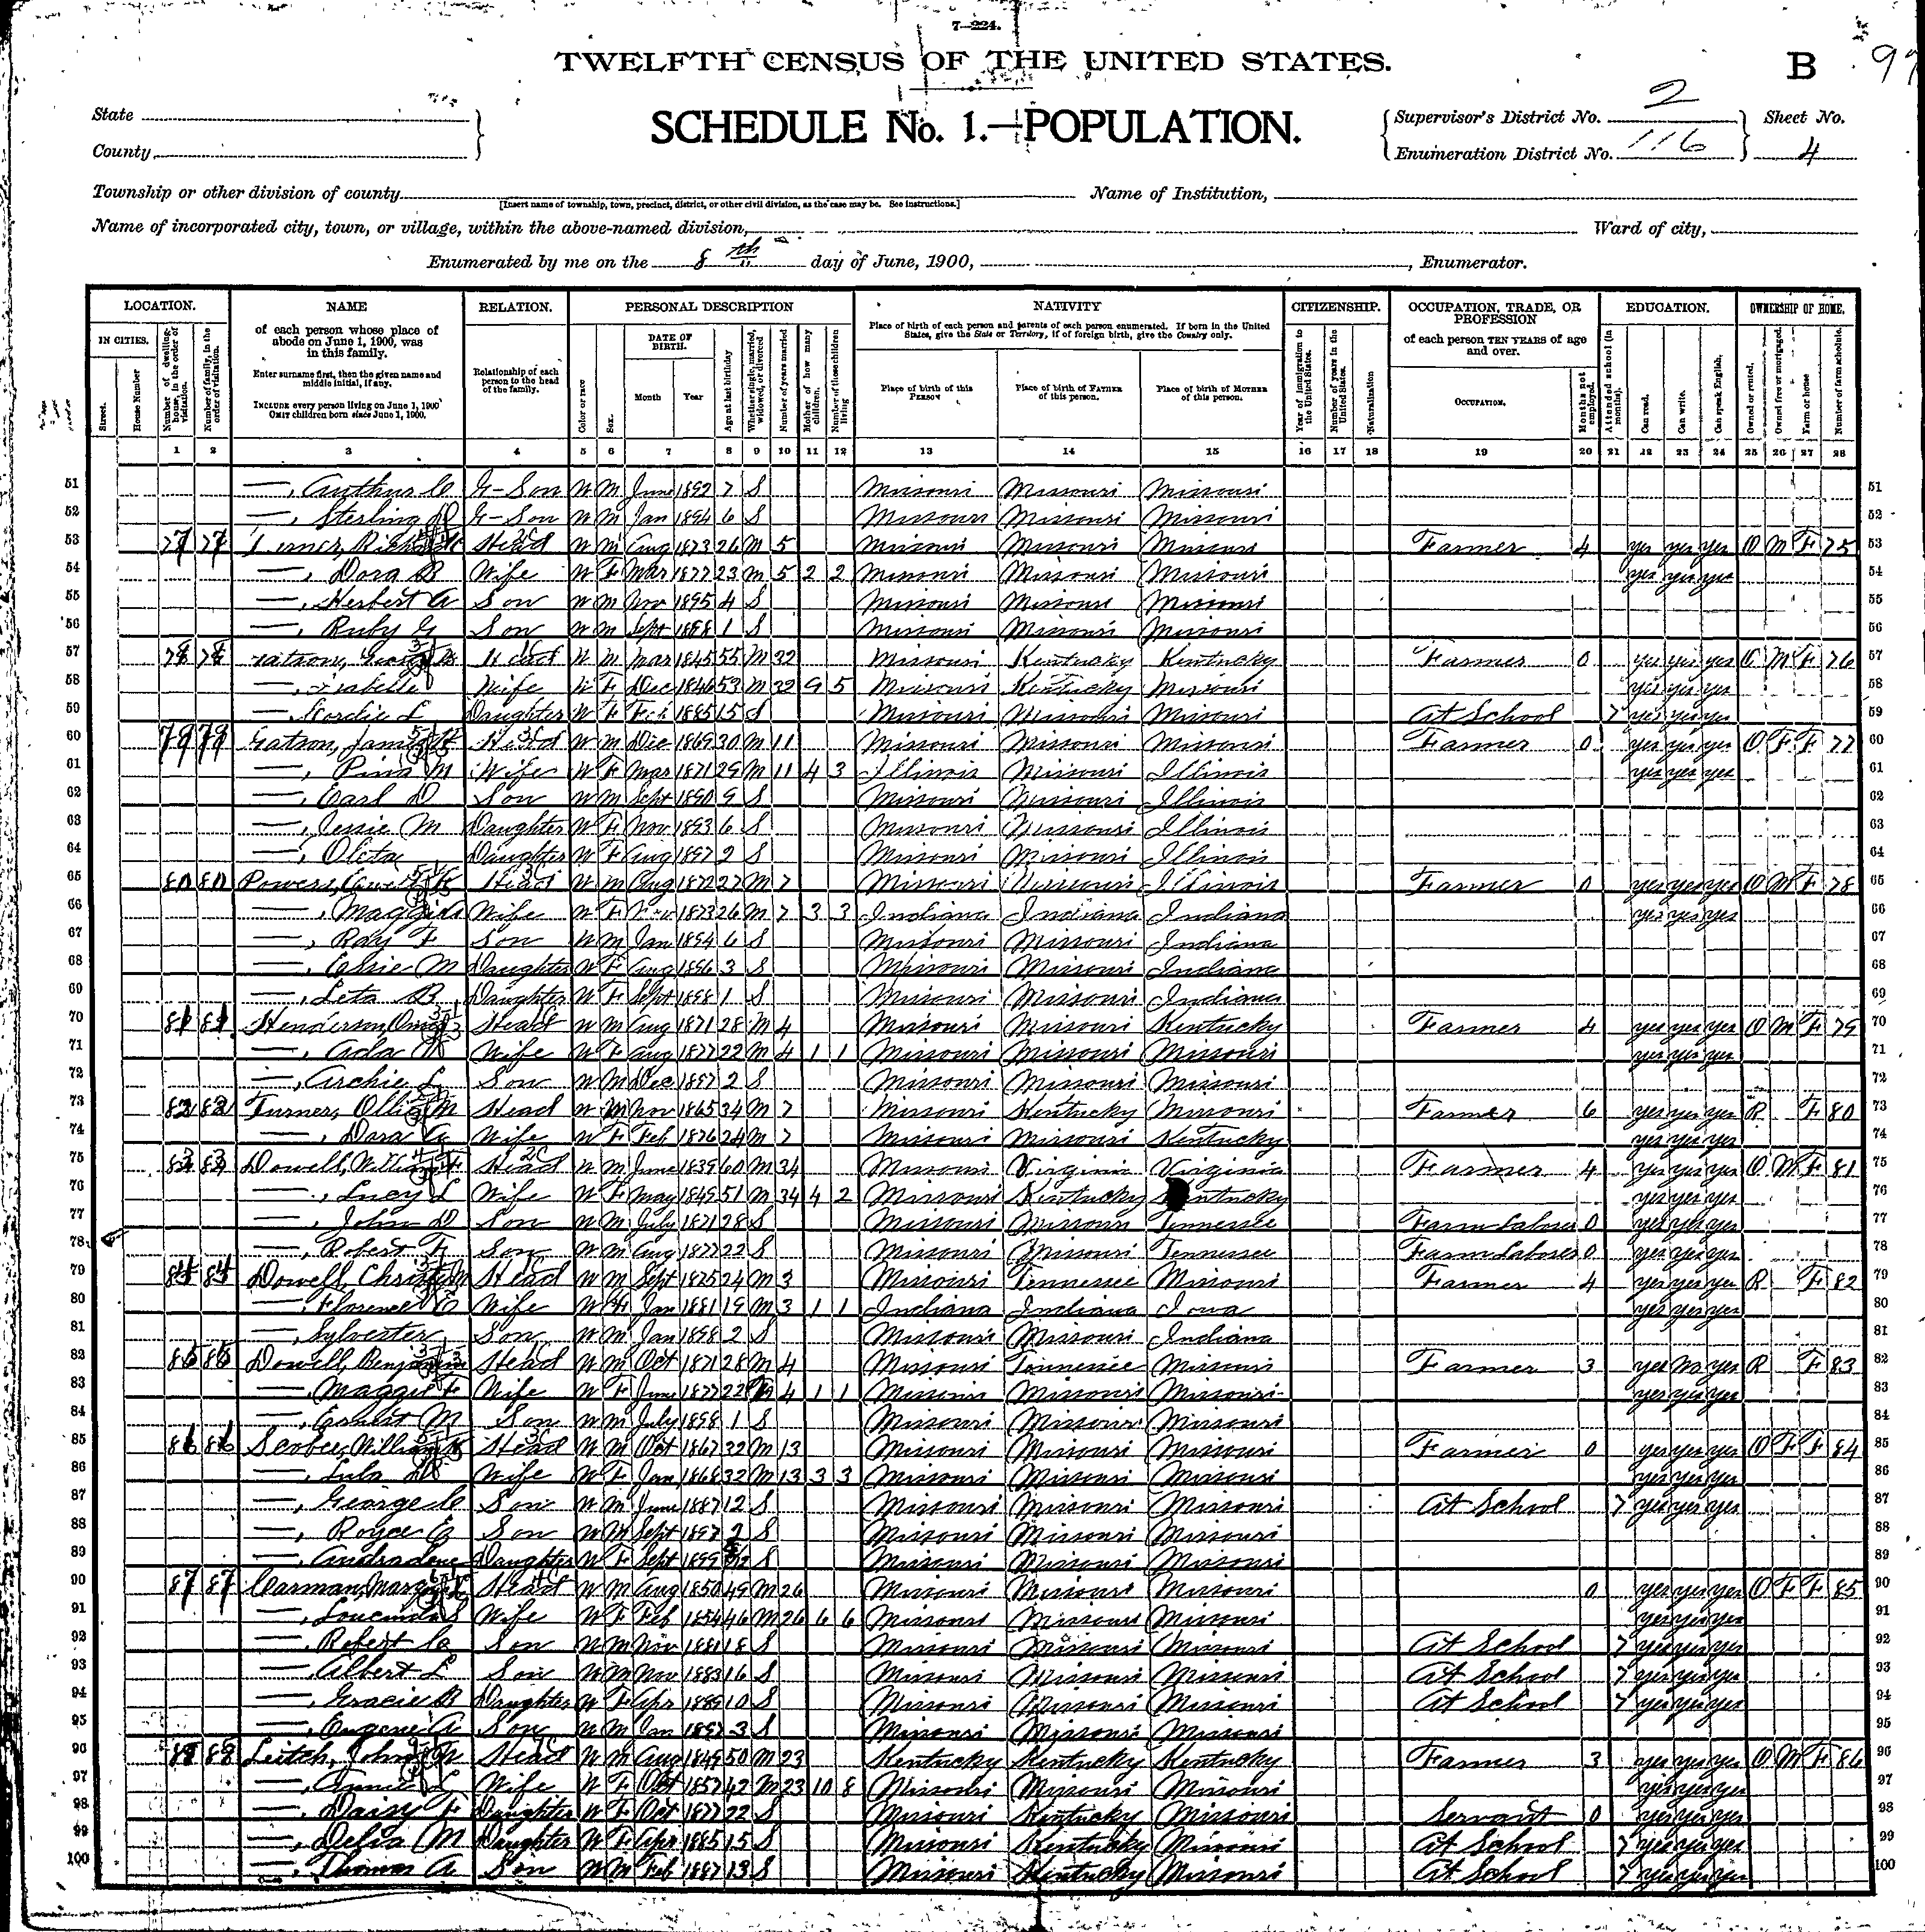 7—224.
TWELFTH CENSUS OF THE UNITED STATES.
B 97
State
County
SCHEDULE No. 1.—POPULATION.
Supervisor's District No. 2
Enumeration District No. 116
Sheet No. 4
Township or other division of county
[Insert name of township, town, precinct, district, or other civil division, as the case may be. See instructions.]
Name of Institution,
Name of incorporated city, town, or village, within the above-named division,
Ward of city,
Enumerated by me on the 8th day of June, 1900, , Enumerator.
LOCATION. NAME RELATION. PERSONAL DESCRIPTION NATIVITY CITIZENSHIP. OCCUPATION, TRADE, OR PROFESSION EDUCATION. OWNERSHIP OF HOME.
IN CITIES. Street. House Number
Number of dwelling-house, in the order of visitation.
Number of family, in the order of visitation.
of each person whose place of abode on June 1, 1900, was in this family.
Enter surname first, then the given name and middle initial, if any.
INCLUDE every person living on June 1, 1900
OMIT children born since June 1, 1900.
Relationship of each person to the head of the family.
Color or race
Sex.
DATE OF BIRTH. Month Year
Age at last birthday
Whether single, married, widowed, or divorced
Number of years married
Mother of how many children.
Number of these children living
Place of birth of each person and parents of each person enumerated. If born in the United States, give the State or Territory, if of foreign birth, give the Country only.
Place of birth of this PERSON
Place of birth of FATHER of this person.
Place of birth of MOTHER of this person.
Year of immigration to the United States.
Number of years in the United States.
Naturalization
of each person TEN YEARS of age and over.
OCCUPATION.
Months not employed.
Attended school (in months).
Can read.
Can write.
Can speak English.
Owned or rented.
Owned free or mortgaged.
Farm or house
Number of farm schedule.
1 2 3 4 5 6 7 8 9 10 11 12 13 14 15 16 17 18 19 20 21 22 23 24 25 26 27 28
51 —, Arthur C G-Son W M June 1892 7 S Missouri Missouri Missouri 51
52 —, Sterling D G-Son W M Jan 1894 6 S Missouri Missouri Missouri 52
53 77 77 Head W M Aug 1873 26 M 5 Missouri Missouri Missouri Farmer 4 yes yes yes O M F 75 53
54 —, Dora B Wife W F Mar 1877 23 M 5 2 2 Missouri Missouri Missouri yes yes yes 54
55 —, Herbert A Son W M Nov 1895 4 S Missouri Missouri Missouri 55
56 —, Ruby G Son W M Sept 1898 1 S Missouri Missouri Missouri 56
57 78 78 Head W M Mar 1845 55 M 32 Missouri Kentucky Kentucky Farmer 0 yes yes yes O M F 76 57
58 —, Isabelle Wife W F Dec 1846 53 M 32 9 5 Missouri Kentucky Missouri yes yes yes 58
59 —, L Daughter W F Feb 1885 15 S Missouri Missouri Missouri At School 7 yes yes yes 59
60 79 79 Gatson, James Head W M Dec 1869 30 M 11 Missouri Missouri Missouri Farmer 0 yes yes yes O F F 77 60
61 —, M Wife W F Mar 1871 29 M 11 4 3 Illinois Missouri Illinois yes yes yes 61
62 —, Earl D Son W M Sept 1890 9 S Missouri Missouri Illinois 62
63 —, Jessie M Daughter W F Nov 1893 6 S Missouri Missouri Illinois 63
64 —, Oleta Daughter W F Aug 1897 2 S Missouri Missouri Illinois 64
65 80 80 Powers, Head W M Aug 1872 27 M 7 Missouri Missouri Illinois Farmer 0 yes yes yes O M F 78 65
66 —, Maggie Wife W F Nov 1873 26 M 7 3 3 Indiana Indiana Indiana yes yes yes 66
67 —, Ray F Son W M Jan 1894 6 S Missouri Missouri Indiana 67
68 —, Essie M Daughter W F Aug 1896 3 S Missouri Missouri Indiana 68
69 —, Leta B Daughter W F Sept 1898 1 S Missouri Missouri Indiana 69
70 81 81 Henderson, Head W M Aug 1871 28 M 4 Missouri Missouri Kentucky Farmer 4 yes yes yes O M F 79 70
71 —, Ada Wife W F Aug 1877 22 M 4 1 1 Missouri Missouri Missouri yes yes yes 71
72 —, Archie L Son W M Dec 1897 2 S Missouri Missouri Missouri 72
73 82 82 Turner, Ollie M Head W M Nov 1865 34 M 7 Missouri Kentucky Missouri Farmer 6 yes yes yes R F 80 73
74 —, Dora A Wife W F Feb 1876 24 M 7 Missouri Missouri Kentucky yes yes yes 74
75 83 83 Dowell, William F Head W M June 1839 60 M 34 Missouri Virginia Virginia Farmer 4 yes yes yes O M F 81 75
76 —, Lucy L Wife W F May 1849 51 M 34 4 2 Missouri Kentucky Kentucky yes yes yes 76
77 —, John D Son W M July 1871 28 S Missouri Missouri Tennessee Farm Laborer 0 yes yes yes 77
78 —, Robert F Son W M Aug 1877 22 S Missouri Missouri Tennessee Farm Laborer 0 yes yes yes 78
79 84 84 Dowell, Head W M Sept 1875 24 M 3 Missouri Tennessee Missouri Farmer 4 yes yes yes R F 82 79
80 —, Florence E Wife W F Jan 1881 19 M 3 1 1 Indiana Indiana Iowa yes yes yes 80
81 —, Sylvester Son W M Jan 1898 2 S Missouri Missouri Indiana 81
82 85 85 Dowell, Benjamin Head W M Oct 1871 28 M 4 Missouri Tennessee Missouri Farmer 3 yes No yes R F 83 82
83 —, Maggie F Wife W F June 1877 22 M 4 1 1 Missouri Missouri Missouri yes yes yes 83
84 —, Ernest M Son W M July 1898 1 S Missouri Missouri Missouri 84
85 86 86 Scobee, William Head W M Oct 1867 32 M 13 Missouri Missouri Missouri Farmer 0 yes yes yes O F F 84 85
86 —, Lula Wife W F Jan 1868 32 M 13 3 3 Missouri Missouri Missouri yes yes yes 86
87 —, George C Son W M June 1887 12 S Missouri Missouri Missouri At School 7 yes yes yes 87
88 —, Royce E Son W M Sept 1897 2 S Missouri Missouri Missouri 88
89 —, Daughter W F Sept 1899 S Missouri Missouri Missouri 89
90 87 87 Carman, Head W M Aug 1850 49 M 26 Missouri Missouri Missouri 0 yes yes yes O F F 85 90
91 —, Loucinda Wife W F Feb 1854 46 M 26 6 6 Missouri Missouri Missouri yes yes yes 91
92 —, Robert C Son W M Nov 1881 18 S Missouri Missouri Missouri At School 7 yes yes yes 92
93 —, Albert L Son W M Nov 1883 16 S Missouri Missouri Missouri At School 7 yes yes yes 93
94 —, Gracie B Daughter W F Apr 1889 10 S Missouri Missouri Missouri At School 7 yes yes yes 94
95 —, Eugene A Son W M Jan 1897 3 S Missouri Missouri Missouri 95
96 88 88 Leitch, John Head W M Aug 1849 50 M 23 Kentucky Kentucky Kentucky Farmer 3 yes yes yes O M F 86 96
97 —, Annie L Wife W F Oct 1857 42 M 23 10 8 Missouri Missouri Missouri yes yes yes 97
98 —, Daisy F Daughter W F Oct 1877 22 S Missouri Kentucky Missouri Servant 0 yes yes yes 98
99 —, Delia M Daughter W F Apr 1885 15 S Missouri Kentucky Missouri At School 7 yes yes yes 99
100 —, Thomas A Son W M Feb 1887 13 S Missouri Kentucky Missouri At School 7 yes yes yes 100